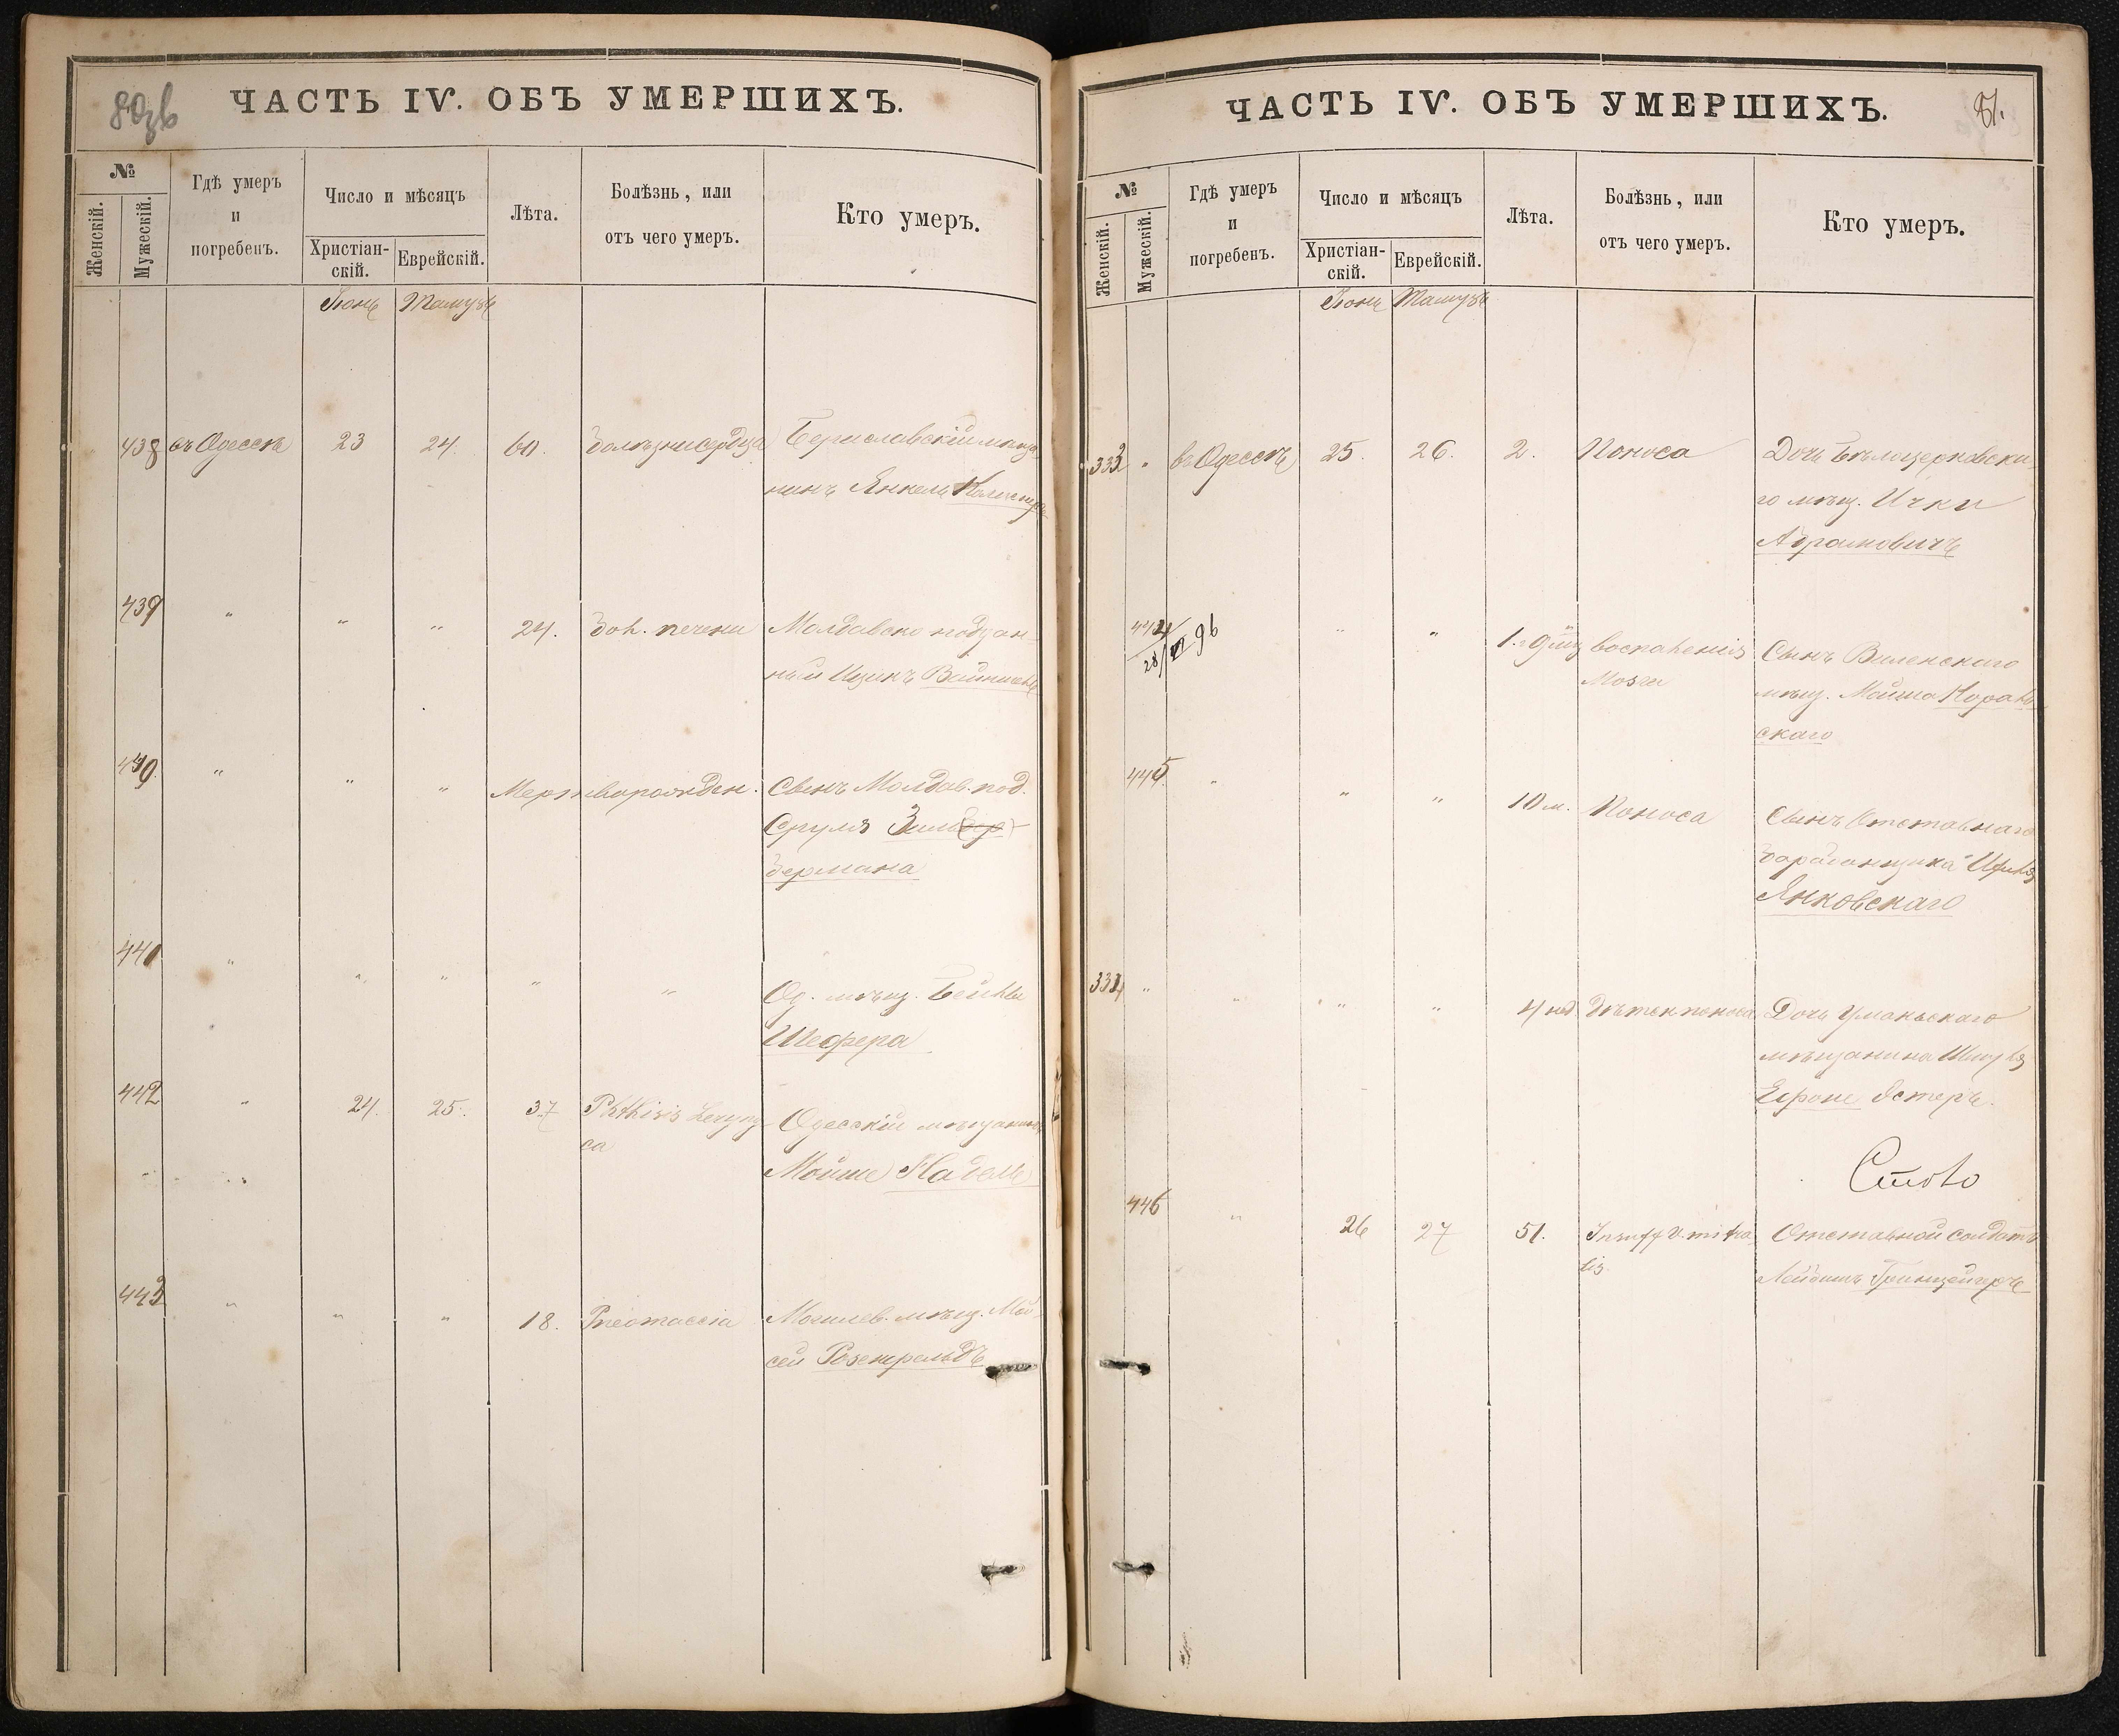 80зв
ЧАСТЬ IV. ОБЪ УМЕРШИХЪ.
№
Женскій.
Мужескій.
Гдѣ умеръ
и
погребенъ.
Число и мѣсяцъ
Христіан-
скій.
Еврейскій.
Лѣта.
Болѣзнь, или
отъ чего умеръ.
Кто умеръ.
Іюнь Тамузъ
438 въ Одессѣ 23 24. 60. Болѣзни сердца Бериславскій мѣща
нинъ Янкель
439 " " " 24. Бол. печени Молдавско поддан-
ный Ицикъ
440. " " " Мертворожден. Сынъ Молдав. под.
Сруля Зильбер
бермана
441 " " " " " Од. мѣщ. Бейла
Шефера
442 " 24. 25. 37 Phthisis
са Одесскій мѣщанинъ
Мойше Надель
443 " " " 18. Могилев. мѣщ. Мой-
сей Розенфельдъ
ЧАСТЬ IV. ОБЪ УМЕРШИХЪ.
81.
№
Женскій.
Мужескій.
Гдѣ умеръ
и
погребенъ.
Число и мѣсяцъ
Христіан-
скій.
Еврейскій.
Лѣта.
Болѣзнь, или
отъ чего умеръ.
Кто умеръ.
Іюнь Тамузъ
333 " въ Одессѣ 25. 26. 2. Поноса Дочь Бѣлоцерковска-
го мѣщ. Ички
Абрамовичъ
444 " " 1. 9 мц воспаленія Сынъ Виленскаго
28/VI 96 Мозга мѣщ. Мойша
скаго
445. " " " 10 м. Поноса Сынъ Отставнаго
барабанщика
Янковскаго
334 " " " " 4 нед. Дѣтск поноса Дочь Уманьскаго
мѣщанина Шмуля
Естеръ.
446 " 26 27 51. Insuff V. mitra
lis. Отставной солдатъ
Лейбишъ